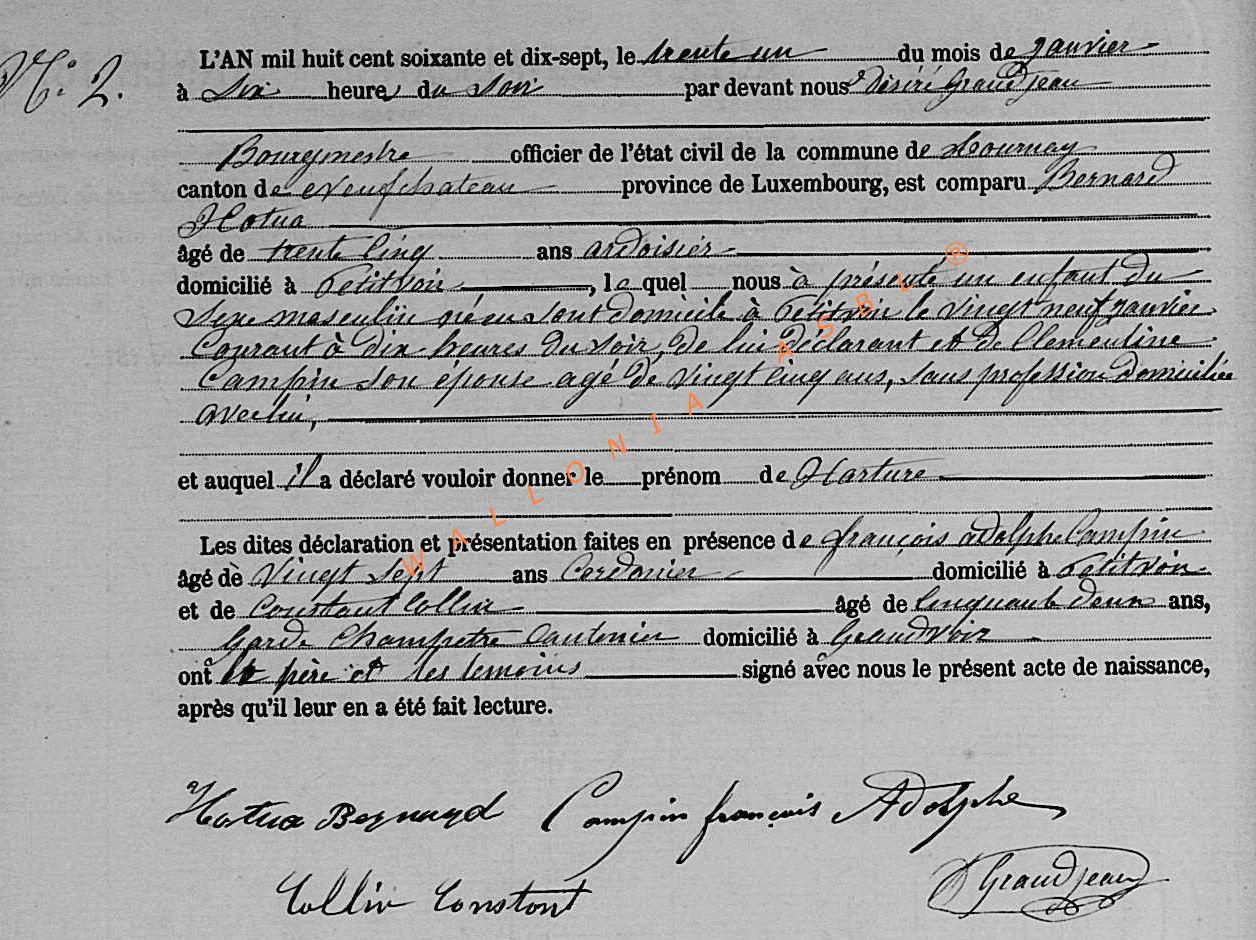 N.o 2.
L'AN mil huit cent soixante et dix-sept, le trente un du mois de janvier
à Six heures du Soir par devant nous Désiré Grandjean
Bourgmestre officier de l'état civil de la commune de Tournay
canton de Neufchateau province de Luxembourg, est comparu Bernard
Hotua
âgé de trente Cinq ans ardoisier
domicilié à Petitvoir, le quel nous à présenté un enfant du
Sexe masculin né en sont domicile à Petitvoir le vingt neuf janvier
Courant à dix heures du soir, de lui déclarant et de Clementine
Campin son épouse agé de vingt cinq ans, sans profession domiciliée
avec lui,
et auquel il a déclaré vouloir donner le prénom de Harture
Les dites déclaration et présentation faites en présence de françois adolphe Campin
âgé de Vingt Sept ans Cordonier domicilié à Petitvoir
et de Constant Collin âgé de Cinquante deux ans,
garde Champetre Cantonier domicilié à Grandvoir
ont le père et les temoins signé avec nous le présent acte de naissance,
après qu'il leur en a été fait lecture.
Hotua Bernard Campin françois Adolphe
Collin Constant D Grandjean
WALLONIA ASBL ®